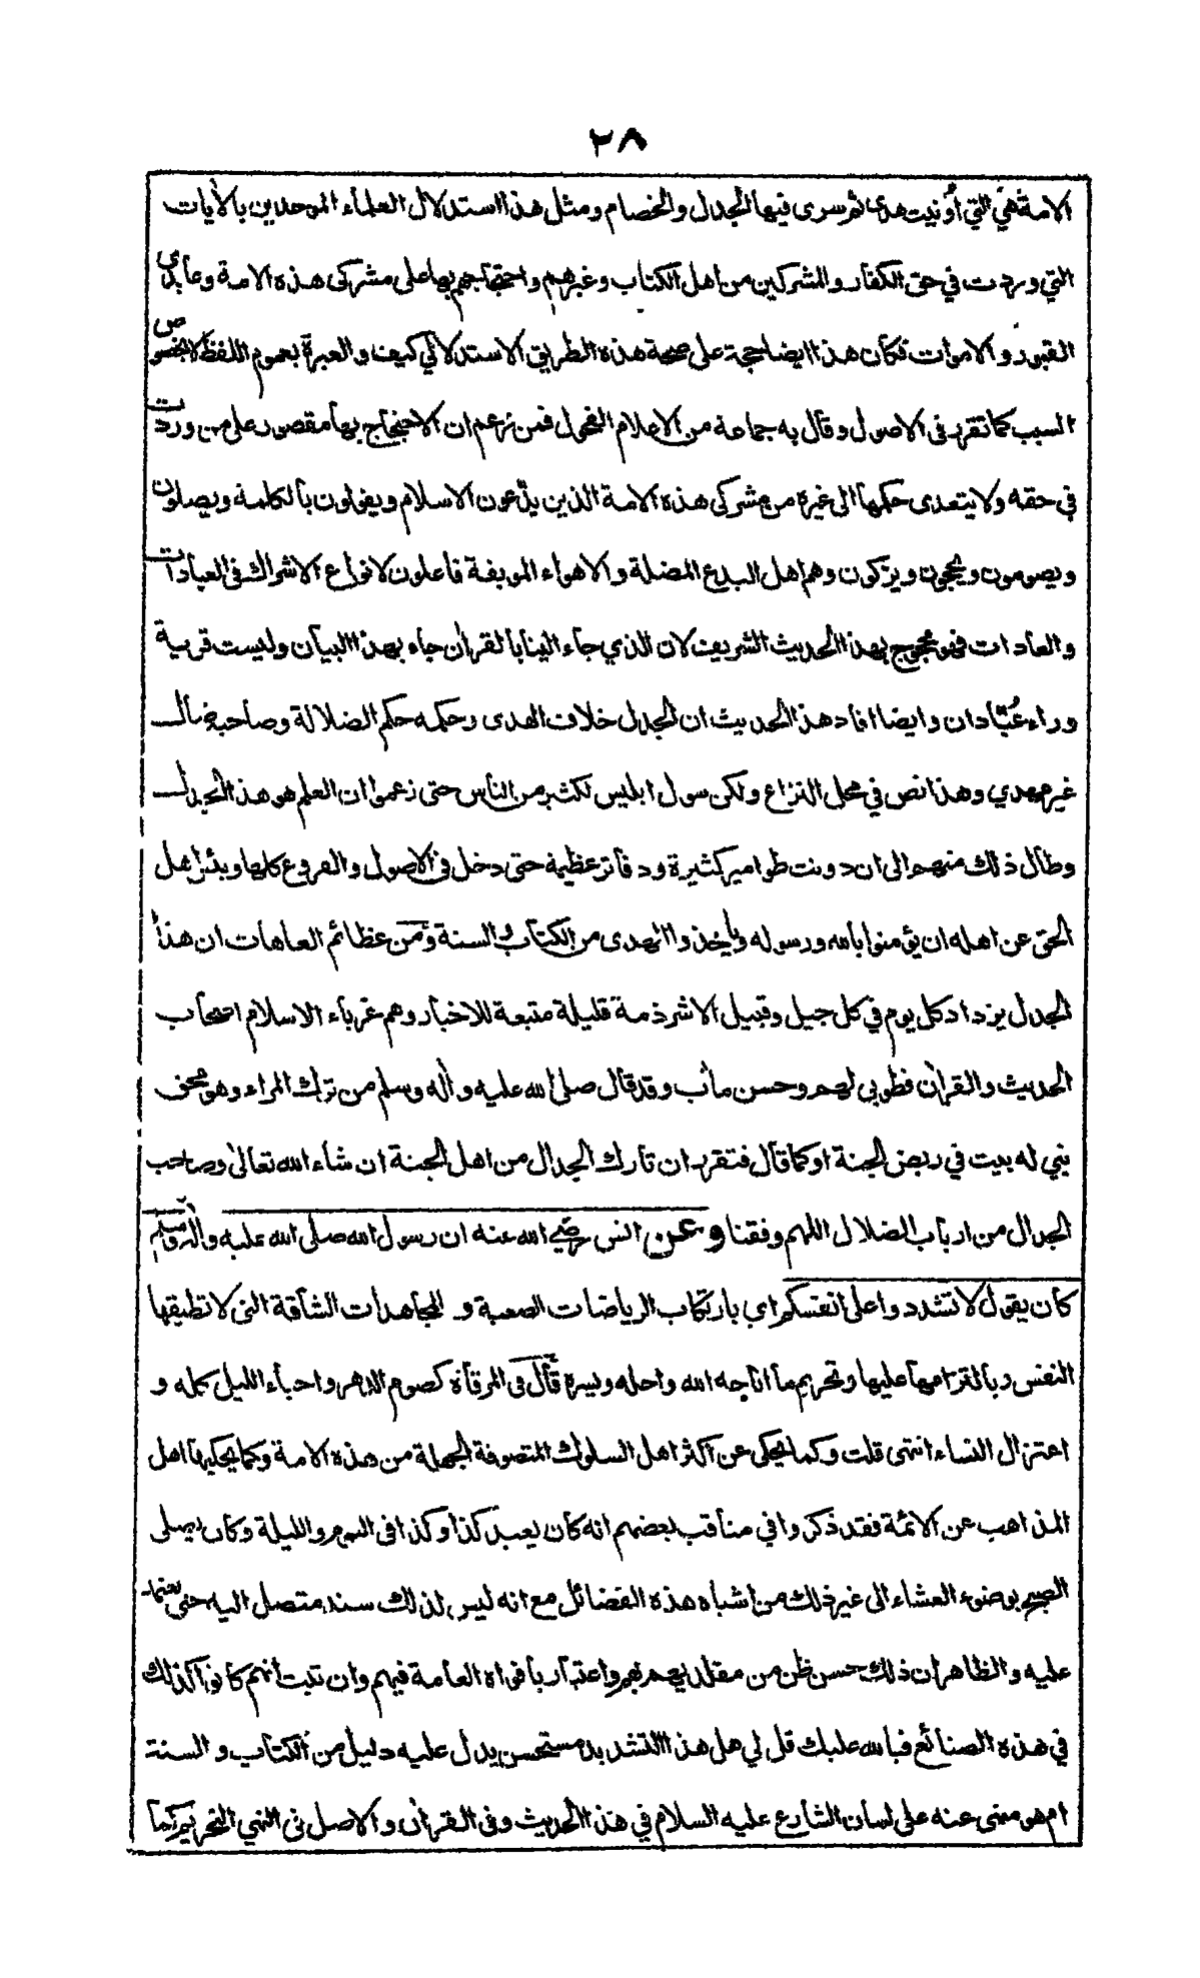 ٢٨
الامة هي التي أوتيت هدى ثم سرى فيها الجدل والخصام ومثل هذا استدلال العلماء الموحدين بالآيات
التي وردت في حق الكفار والمشركين من اهل الكتاب وغيرهم واحتجاجهم بها على مشركي هذه الامة وعابدي
القبور والاموات فكان هذا ايضا حجة على صحة هذه الطريق الاستدلالي كيف والعبرة بعموم اللفظ لا بخصوص
السبب كما تقرر في الاصول وقال به جماعة من الاعلام الفحول فمن زعم ان الاحتجاج بها مقصور على من وردت
في حقه ولا يتعدى حكمها الى غيره من مشركي هذه الامة الذين يدّعون الاسلام ويقولون بالكلمة ويصلون
ويصومون ويحجون ويزكون وهم اهل البدع المضلة والاهواء الموبقة فاعلون لانواع الاشراك في العبادات
والعادات فهو محجوج بهذا الحديث الشريف لان الذي جاء الينا بالقرآن جاء بهذا البيان وليست قرية
وراء عُبّادان وايضا افاد هذا الحديث ان الجدل خلاف الهدى وحكمه حكم الضلالة وصاحبه ضال
غير مهدي وهذا نص في محل النزاع ولكن سول ابليس لكثير من الناس حتى زعموا ان العلم هو هذا الجدل
وطال ذلك منهم الى ان دونت طوامير كثيرة ودفاتر عظيمة حتى دخل في الاصول والفروع كلها ويئس اهل
الحق عن اهله ان يؤمنوا بالله ورسوله ويأخذوا الهدى من الكتاب والسنة ومن عظائم العاهات ان هذا
الجدل يزداد كل يوم في كل جيل وقبيل الا شرذمة قليلة متبعة للاخبار وهم غرباء الاسلام اصحاب
الحديث والقرآن فطوبى لهم وحسن مآب وقد قال صلى الله عليه وآله وسلم من ترك المراء وهو محق
بني له بيت في ربض الجنة او كما قال فتقرر ان تارك الجدال من اهل الجنة ان شاء الله تعالى وصاحب
الجدال من ارباب الضلال اللهم وفقنا وعن انس رضي الله عنه ان رسول الله صلى الله عليه وآله وسلم
كان يقول لا تشددوا على انفسكم اي بارتكاب الرياضات الصعبة و المجاهدات الشاقة التي لا تطيقها
النفس وبالتزامها عليها وتحريم ما اباحه الله واحله ويسره قال في المرقاة كصوم الدهر واحياء الليل كله و
اعتزال النساء انتهى قلت وكما يحكى عن اكثر اهل السلوك المتصوفة الجهلة من هذه الامة وكما يحكيها اهل
المذاهب عن الائمة فقد ذكروا في مناقب بعضهم انه كان يعبد كذا وكذا في اليوم والليلة وكان يصلى
الصبح بوضوء العشاء الى غير ذلك من اشباه هذه الفضائل مع انه ليس لذلك سند متصل اليه حتى يعتمد
عليه والظاهر ان ذلك حسن ظن من مقلديهم بهم واعتبار بافواه العامة فيهم وان ثبت انهم كانوا كذلك
في هذه الصنائع فبالله عليك قل لي هل هذا التشديد مستحسن يدل عليه دليل من الكتاب والسنة
ام هو منهى عنه على لسان الشارع عليه السلام في هذا الحديث وفي القرآن والاصل في النهي التحريم كما